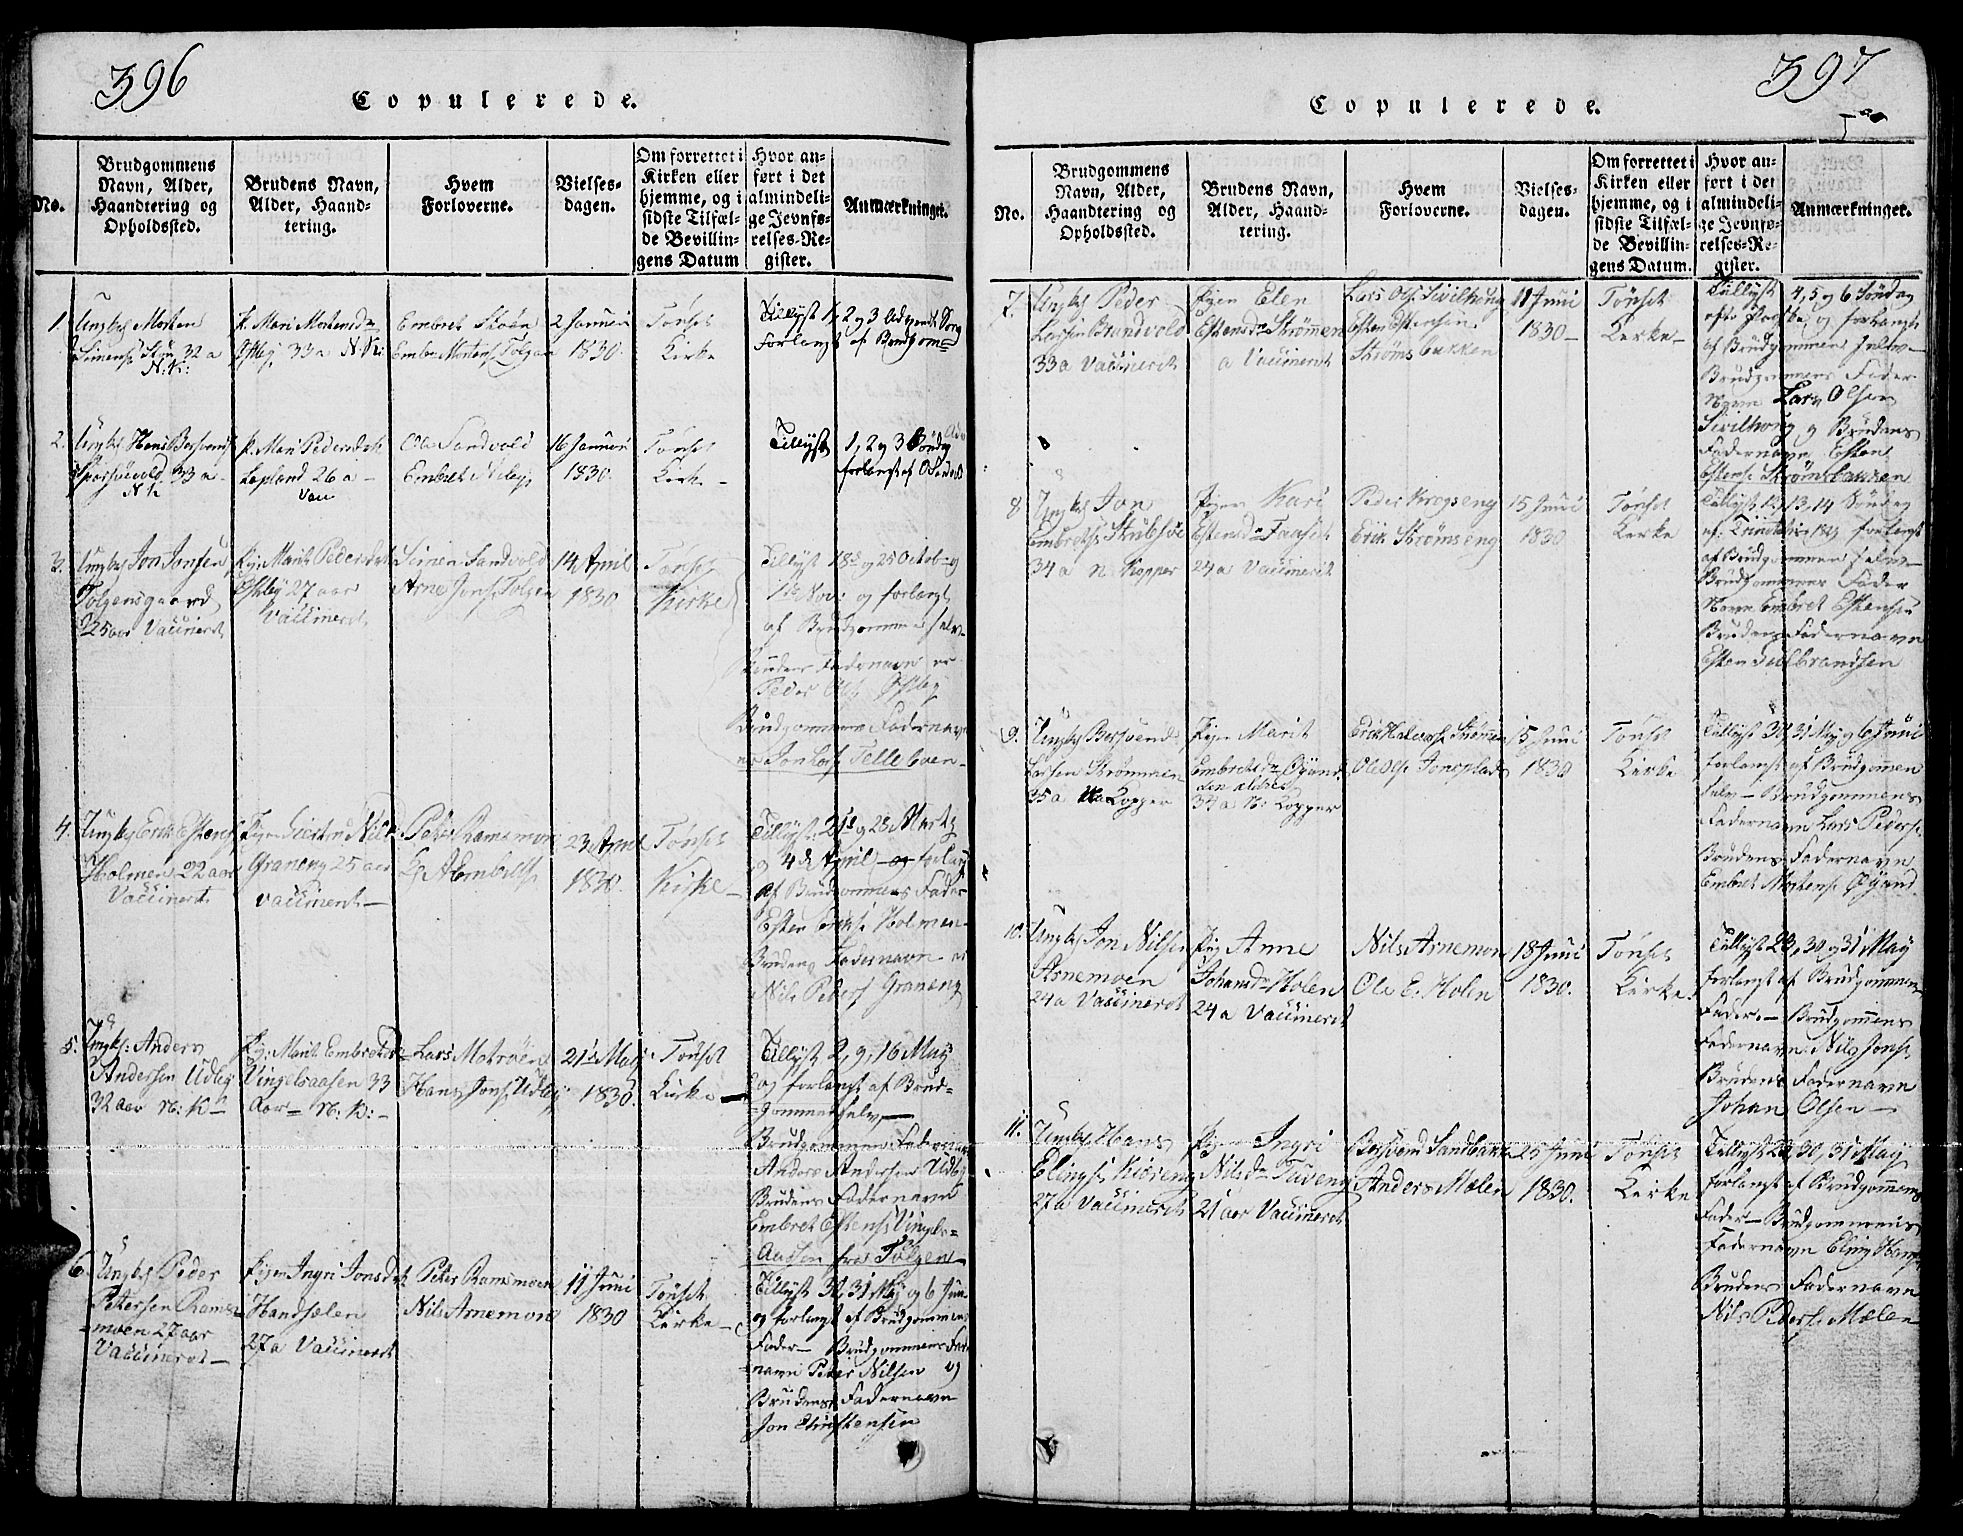 396
Copulerede.
No.
Brudgommens Navn, Alder, Haandtering og Opholdssted.
Brudens Navn, Alder, Haandtering.
Hvem Forloverne.
Vielsesdagen.
Om forrettet i Kirken eller hjemme, og i sidste Tilfælde Bevillingens Datum
Hvor anført i det almindelige Jevnførelses-Register.
Anmærkninger.
1.
Ungk Morten
Simens 32 a
N: K:
P. Mari Mortensd
Østby 33 a N. K:
Embret
Embr Mortens Tolgen
2 Januari
1830.
Tønset
Kirke
Tillyst 1, 2 og 3 Advents
Forlangt af Brudgom
2.
Ungk Hans Bersvends
33 a
N k
P. Mari Pedersd
Lapland 26 a
Vac
Ole Sandvold
Embret
16 Januari
1830.
Tønset
Kirke
Tillyst 1, 2 og 3 Søndag
forlangt af O Sandvold
3.
Ungk Jon Jonsen
Tolgensgaard
25 aar Vaccineret
Pige Marit Pedersdat
Østby 27 aar
Vaccineret
Simen Sandvold
Arne Jons Tolgen
14 April
1830.
Tønset
Kirke
Tillyst 18de og 25 Octob og
1ste Nov: og forlangt
af Brudgommen selv
Brudens Fadernavn er
Peder Ols Østby
Brudgommens Fadernavn
er Jon Telleboen
4.
Ungk Erik Estens
Holmen 22 aar
Vaccineret
Pige Nils
Graneng 25 aar
vaccineret
Peder Ramsmoen
Embrets
23 April
1830.
Tønset
Kirke
Tillyst: 21de og 28 Marts
og 4de April og forlangt
af Brudgommens Fader
Esten Eriks Holmen
Brudens Fadernavn er
Nils Peders Graneng
5.
Ungk: Anders
Andersen Udby
32 aar N: K
Pig: Marit Embretsd
Vingelsaasen 33
Aar N: K:
Lars Motrøen
Hans Jons Udby
21de May
1830.
Tønset
Kirke
Tillyst 2, 9, 16 May
og forlangt af Brudgommen
selv
Brudgommens Fadernavn
Anders Andersen Udby
Brudens Fadernavn
Embret Estens Vingels
Aasen fra Tolgen
6.
Ungk Peder
Petersen Ramsmoen
27 aar
Vaccineret
Pigen Ingri Jonsdat
27 a Vaccineret
Peter Ramsmoen
Nils Arnemoen
11 Juni
1830
Tønset
Kirke
Tillyst 30, 31 May og 6 Juni
og forlangt af Brudgommens
Fader Brudgommens Fadernavn
Peter Nilsen og
Brudens Fadernavn
Jon Christensen
397
Copulerede.
No.
Brudgommens Navn, Alder, Haandtering og Opholdssted.
Brudens Navn, Alder, Haandtering.
Hvem Forloverne.
Vielsesdagen.
Om forrettet i Kirken eller hjemme, og i sidste Tilfælde Bevillingens Datum.
Hvor anført i det almindelige Jevnførelses-Register.
Anmærkninger.
7.
Ungk Peder
Larsen Brandvold
33 a Vaccineret
Pigen Elen
Estensd Strømen
a Vaccineret
Lars Ols Sivilhoug
Esten Estensen
Strømsbakken
11 Juni
1830
Tønset
Kerke
Tillyst 4, 5 og 6 Søndag
efter Paaske og forlangt
af Brudgommen selv
Brudgommens Fader
Navn Lars Olsen
Sivilhoug og Brudens
Fadernavn Esten
Estens Strømsbakken
8
Ungk Jon
Embrets Stubsøe
34 a N. Kopper
Pigen Kari
Estensd Faaset
24 a Vaccineret
Peder Krogseng
Erik Strømseng
15 Juni
1830
Tønset
Kerke
Tillyst 12, 13, 14 Søndag
af: Trinitatis 1829 forlangt
af Brudgommen selv
Brudgommens Fader
Navn Embret Estensen
Brudens Fadernavn
Esten Gulbrandsen
9.
Ungk Bersvend
Larsen Strømmen
35 a Kopper
Pigen Marit
Embretsd Øyand
den ældre
34 a N: Kopper
Erik Halvors Strømmen
Ole Ols Jonsplads
15 Juni
1830
Tønset
Kerke
Tillyst 30, 31 May og 6 Juni
forlangt af Brudgommen
selv Brudgommens
Fadernavn Lars Peders
Brudens Fadernavn
Embret Mortens Øyand
10.
Ungk Jon Nilsen
Arnemoen
24 a Vaccineret
Pig Anne
Johansd Holen
24 a Vaccineret
Nils Arnemoen
Ole E. Holen
18 Juni
1830.
Tønset
Kerke.
Tillyst 23, 30 og 31 May
forlangt af Brudgommens
Fader. Brudgommens
Fadernavn: Nils Jons
Brudens Fadernavn
Johan Olsen
11.
Ungk Hans
Elings Kiæreng
27 a Vaccineret
Pige Ingri
Nilsd Tuveng
21 aar Vaccineret
Bersvend Sandbakk
Anders Mælen
25 Juni
1830.
Tønset
Kerke
Tillyst 23, 30, 31 May
forlangt af Brudgommens
Fader Brudgommens
Fadernavn Eling Hans
Brudens Fadernavn
Nils Peders Mælen